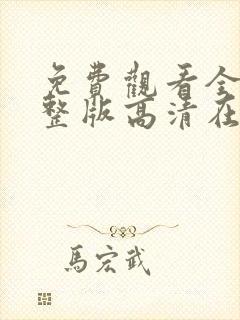 免費觀看全
整版高清在
馬宏武